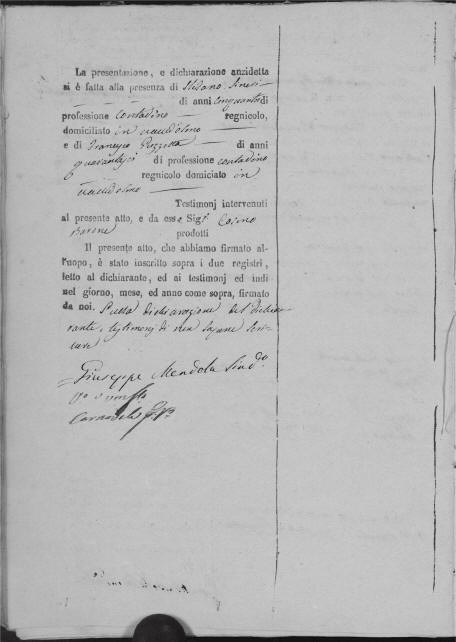 La presentazione, e dichiarazione anzidetta
si è fatta alla presenza di Stefano Sinesi
di anni cinquanta di
professione contadino regnicolo,
domiciliato in
e di Francesco di anni
quarantasei di professione contadino
regnicolo domiciato in
Testimonj intervenuti
al presente atto, e da esso Sigr. Cosimo
Barone prodotti
Il presente atto, che abbiamo firmato al-
l'uopo, è stato inscritto sopra i due registri,
letto al dichiarante, ed ai testimonj ed indi
nel giorno, mese, ed anno come sopra, firmato
da noi. Sulla dichiarazione del dichia-
rante, testimonj di non sapere scri-
vere
Giuseppe Mendola Sindo.